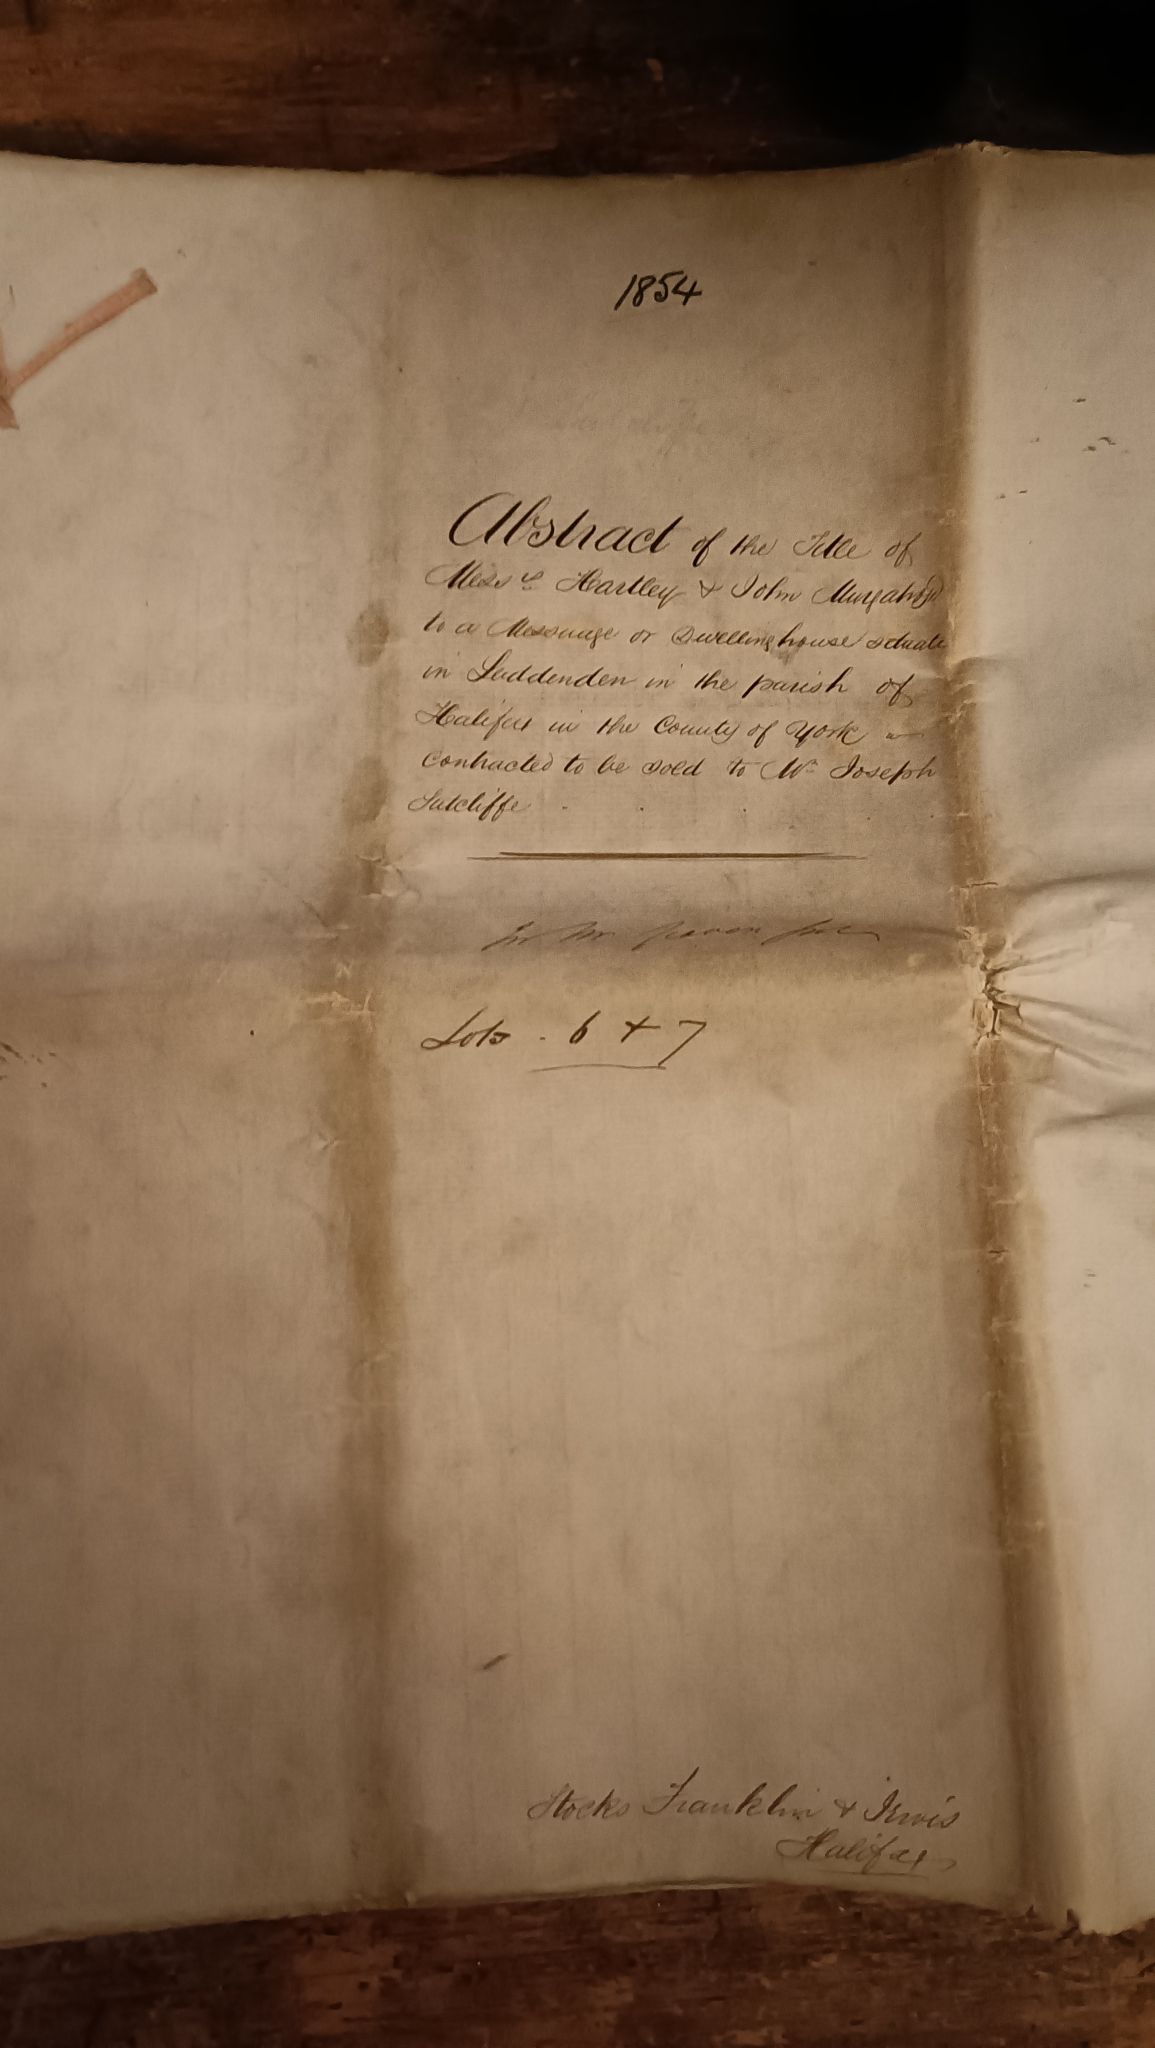 1854
Abstract of the Title of
Messrs Hartley & John Murgatroyd
to a Messuage or Dwellinghouse situate
in Luddenden in the parish of
Halifax in the County of York
contracted to be sold to Mr Joseph
Sutcliffe
Lots . 6 & 7
Stocks Franklin & Irwis
Halifax